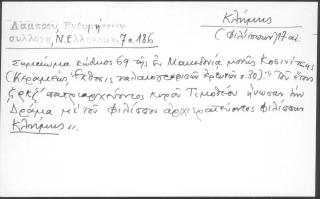 Λάμπρου, Ενθυμήσεων
συλλογή, Ν. Ελληνομν. 7ος 186
Κλήμης
(Φιλίππων) 17 αἰ.
Σημείωμα κώδικος 69 τῆς ἐν Μακεδονίᾳ μονῆς Κοσινίτσης
(Κεραμέως, Ἔκθεσις παλαιογραφικῶν ἐρευνῶν σ. 30). "Τοῦ ἔτους
ζρκζ' πατριαρχεύοντος κυροῦ Τιμοθέου ἥνωσαν τὴν
Δράμα μὲ τοῦ Φιλίππου ἀρχιερατεύοντος Φιλίππων
Κλήμης".